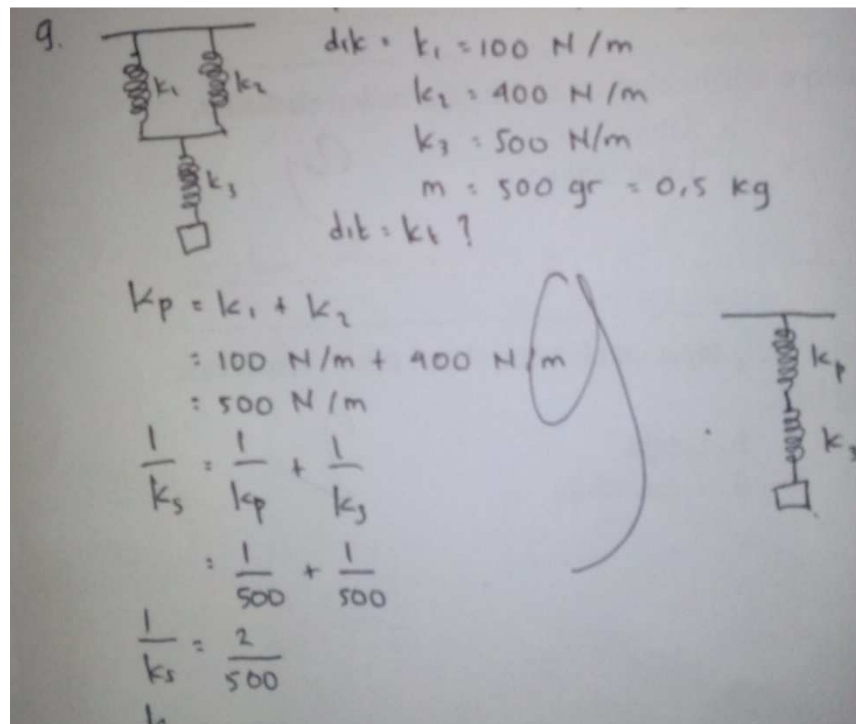 9.
k₁ k₂
k₃
dik : k₁ = 100 N/m
k₂ = 400 N/m
k₃ = 500 N/m
m = 500 gr = 0,5 kg
dit = kt ?
kp = k₁ + k₂
= 100 N/m + 400 N/m
= 500 N/m
1/ks = 1/kp + 1/k₃
= 1/500 + 1/500
1/ks = 2/500
9
kp